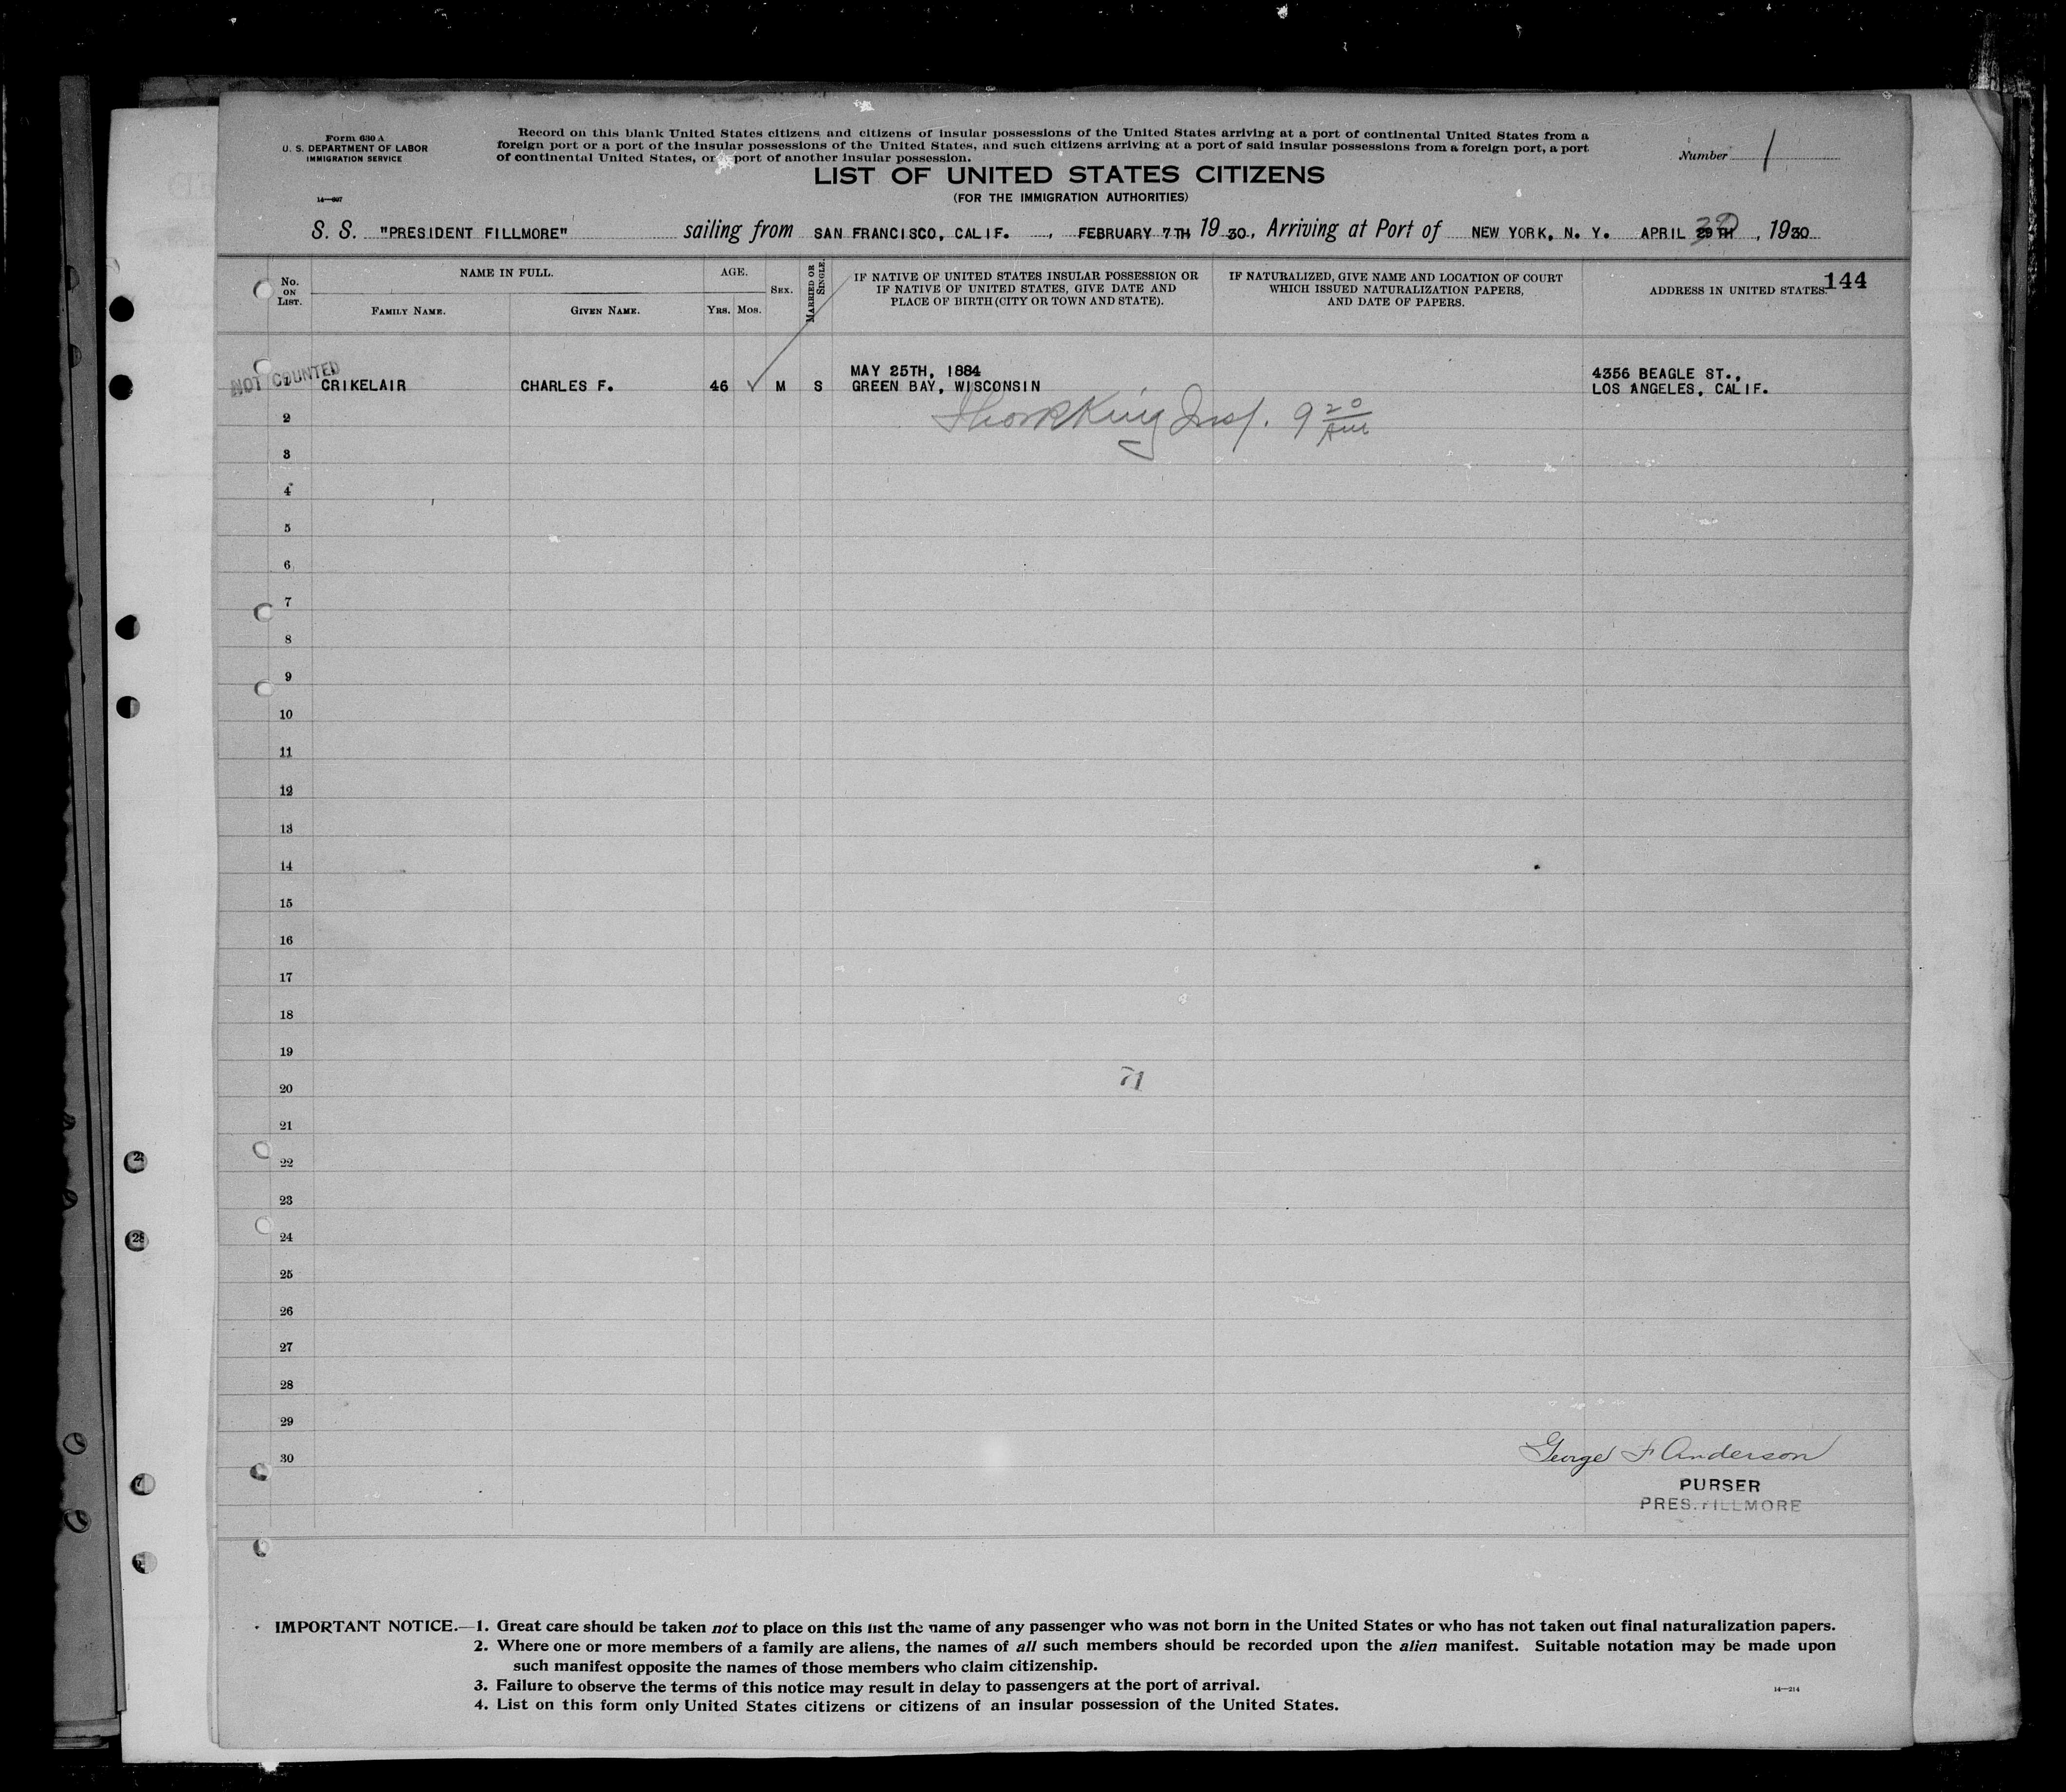 Form 630 A
U. S. DEPARTMENT OF LABOR
IMMIGRATION SERVICE
14—607
Record on this blank United States citizens and citizens of insular possessions of the United States arriving at a port of continental United States from a
foreign port or a port of the insular possessions of the United States, and such citizens arriving at a port of said insular possessions from a foreign port, a port
of continental United States, or a port of another insular possession.
Number 1
LIST OF UNITED STATES CITIZENS
(FOR THE IMMIGRATION AUTHORITIES)
S. S. "PRESIDENT FILLMORE" sailing from SAN FRANCISCO, CALIF. , FEBRUARY 7TH 1930., Arriving at Port of NEW YORK, N. Y. APRIL 29TH 30, 1930
144
No. ON LIST.
NAME IN FULL.
FAMILY NAME.
GIVEN NAME.
AGE.
YRS. MOS.
SEX.
MARRIED OR SINGLE.
IF NATIVE OF UNITED STATES INSULAR POSSESSION OR
IF NATIVE OF UNITED STATES, GIVE DATE AND
PLACE OF BIRTH (CITY OR TOWN AND STATE).
IF NATURALIZED, GIVE NAME AND LOCATION OF COURT
WHICH ISSUED NATURALIZATION PAPERS,
AND DATE OF PAPERS.
ADDRESS IN UNITED STATES.
NOT COUNTED
MAY 25TH, 1884 4356 BEAGLE ST.,
1 CRIKELAIR CHARLES F. 46 ✓ M S GREEN BAY, WISCONSIN LOS ANGELES, CALIF.
King Insp. 9 20 AM
2
3
4
5
6
7
8
9
10
11
12
13
14
15
16
17
18
19
71
20
21
22
23
24
25
26
27
28
29
30
George F Anderson
PURSER
PRES. FILLMORE
IMPORTANT NOTICE.—1. Great care should be taken not to place on this list the name of any passenger who was not born in the United States or who has not taken out final naturalization papers.
2. Where one or more members of a family are aliens, the names of all such members should be recorded upon the alien manifest. Suitable notation may be made upon
such manifest opposite the names of those members who claim citizenship.
3. Failure to observe the terms of this notice may result in delay to passengers at the port of arrival.
14—214
4. List on this form only United States citizens or citizens of an insular possession of the United States.